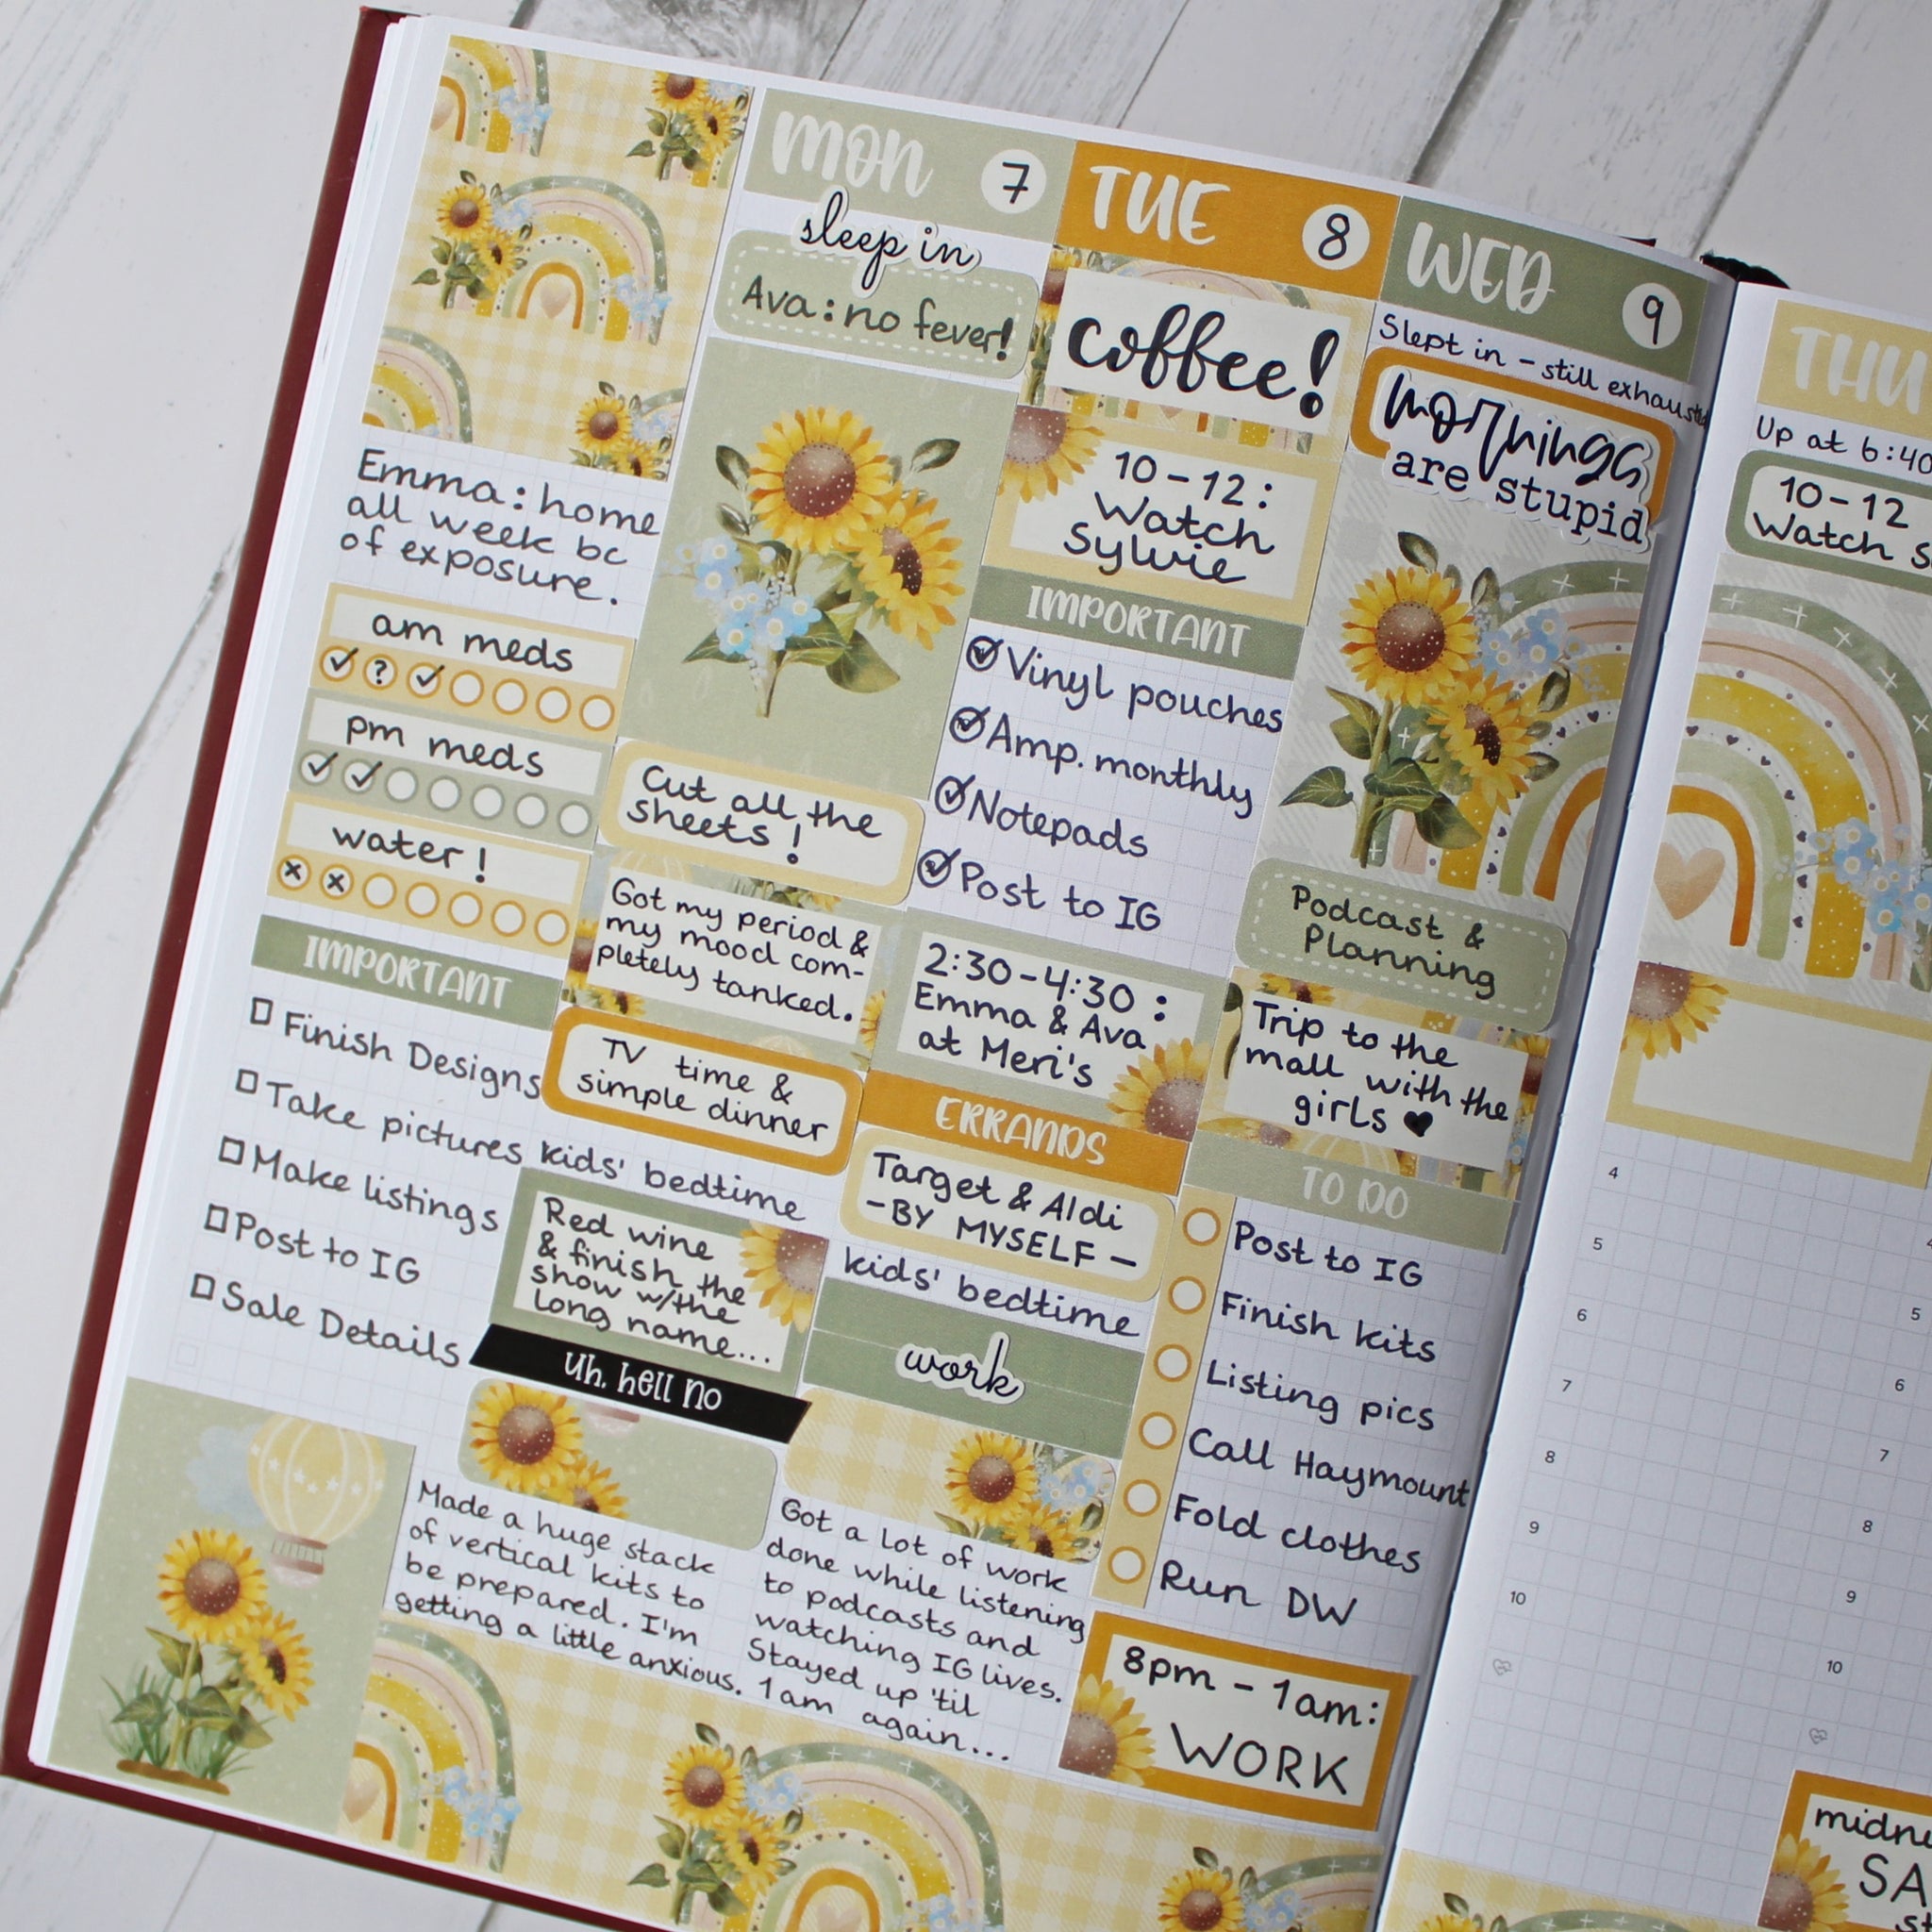 Emma: home
all week bc
of exposure.
am meds
?
pm meds
water!
IMPORTANT
Finish Designs
Take pictures
Make listings
Post to IG
Sale Details
MON 7
sleep in
Ava: no fever!
Cut all the
sheets!
Got my period &
my mood com-
pletely tanked.
TV time &
simple dinner
kids' bedtime
Red wine
& finish the
show w/the
long name...
uh, hell no
Made a huge stack
of vertical kits to
be prepared. I'm
getting a little anxious.
TUE 8
coffee!
10-12:
Watch
Sylvie
IMPORTANT
Vinyl pouches
Amp. monthly
Notepads
Post to IG
2:30-4:30:
Emma & Ava
at Meri's
ERRANDS
Target & Aldi
-BY MYSELF-
kids' bedtime
work
Got a lot of work
done while listening
to podcasts and
watching IG lives.
Stayed up 'til
1am again...
WED 9
Slept in - still exhausted
mornings
are stupid
Podcast &
Planning
Trip to the
mall with the
girls ♥
TO DO
Post to IG
Finish kits
Listing pics
Call Haymount
Fold clothes
Run DW
8pm - 1am:
WORK
THU
Up at 6:40
10-12
Watch S
4
5
6
7
8
9
10
4
5
6
7
8
9
10
midn
SA